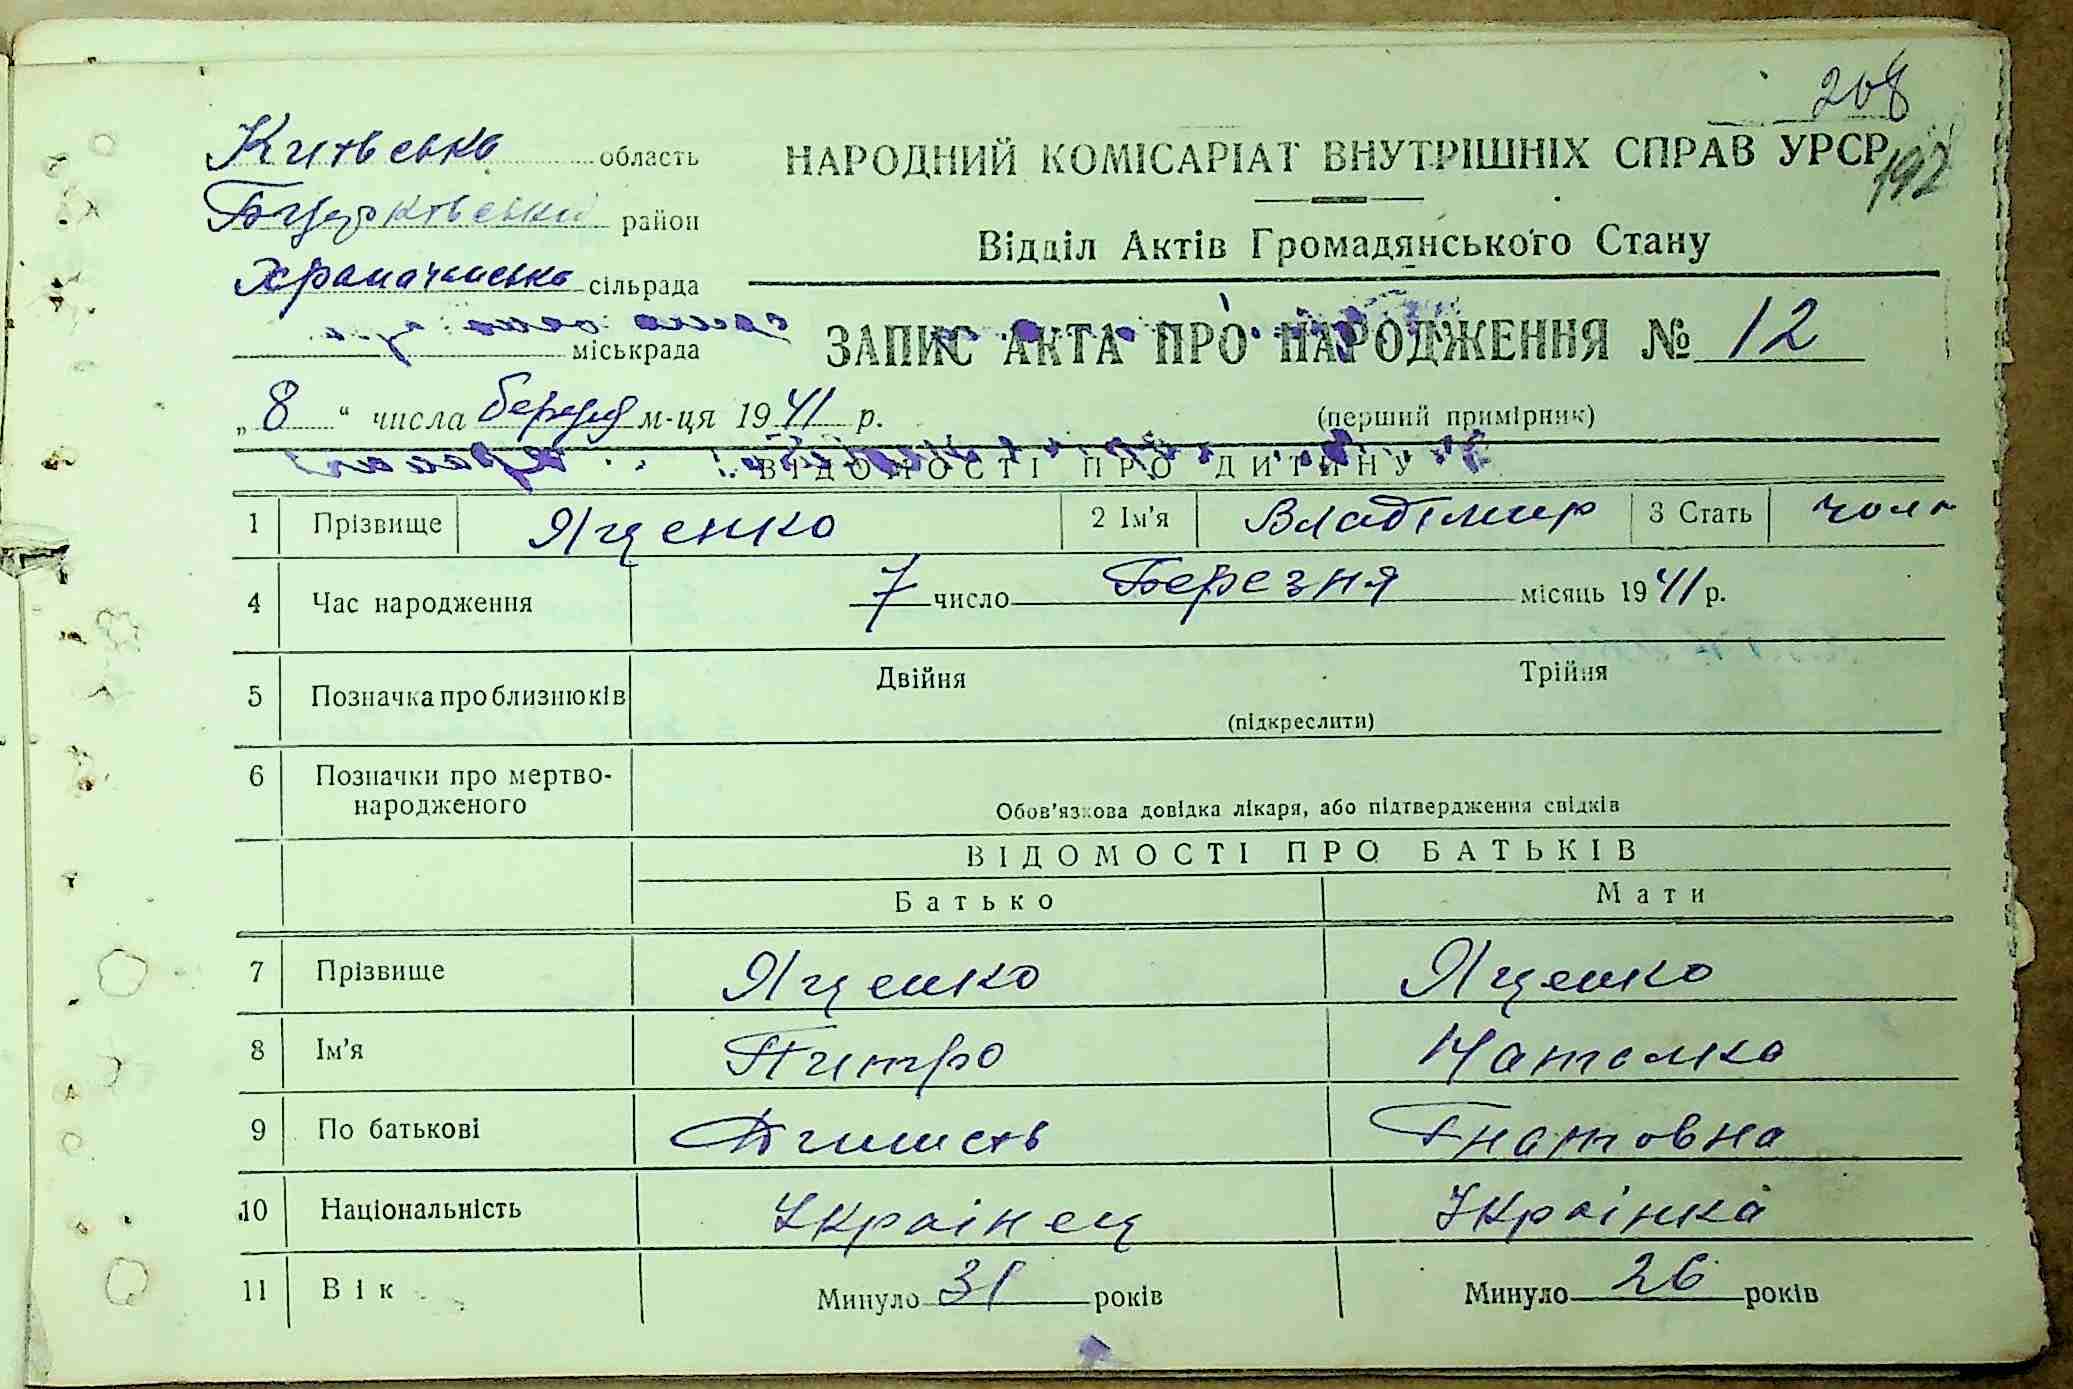 208
192
Китвсько область
НАРОДНИЙ КОМІСАРІАТ ВНУТРІШНІХ СПРАВ УРСР
Бцерктвський район
Відділ Актів Громадянського Стану
сільрада
міськрада
ЗАПИС АКТА ПРО НАРОДЖЕННЯ № 12
„8“ числа березня м-ця 1941 р.
(перший примірник)
ВІДОМОСТІ ПРО ДИТИНУ
1 Прізвище Яценко 2 Ім'я Владімир 3 Стать чол
4 Час народження 7 число Березня місяць 1941 р.
5 Позначка про близнюків Двійня Трійня
(підкреслити)
6 Позначки про мертво-
народженого
Обов'язкова довідка лікаря, або підтвердження свідків
ВІДОМОСТІ ПРО БАТЬКІВ
Батько Мати
7 Прізвище Яценко Яценко
8 Ім'я Питро Наталка
9 По батькові Гнатовна
10 Національність Украінец Украінка
11 Вік Минуло 31 років Минуло 26 років